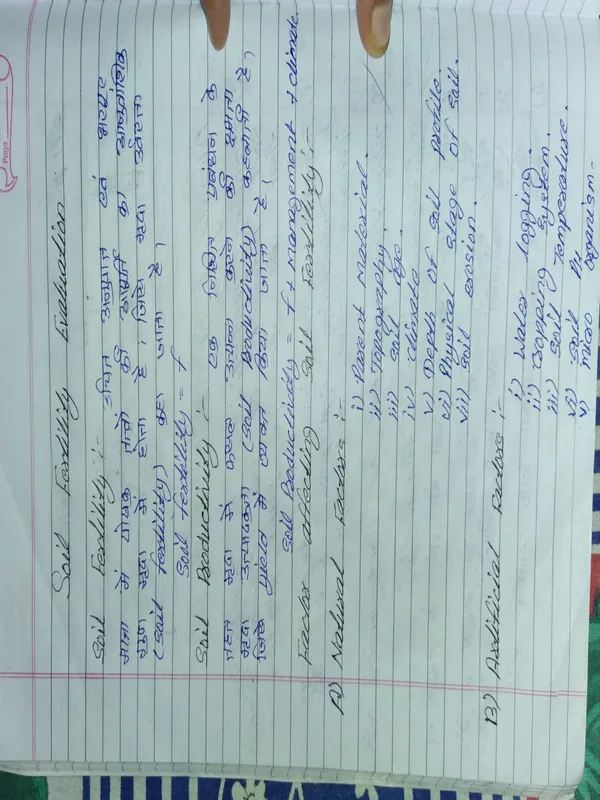 Page
Soil Fertility Evaluation
Soil Fertility :- उचित अनुपात एवं भरपूर
मात्रा में पोषक तत्वों की आपूर्ति का आनुवांशिक
गुण मृदा में होता है, जिसे मृदा उर्वरता
(Soil fertility) कहा जाता है।
Soil fertility = f
Soil Productivity :- एक निश्चित प्रबंधन के
तहत मृदा में फसल उत्पन्न करने की क्षमता
मृदा उत्पादकता (Soil Productivity) कहलाती है।
जिसे yield में व्यक्त किया जाता है।
Soil Productivity = f + Management + climate
Factor affecting Soil Fertility :-
A) Natural Factors :-
i) Parent material.
ii) Topography.
iii) Soil Age.
iv) climate
v) Depth of soil profile
vi) Physical stage of soil.
vii) soil erosion.
B) Artificial Factors :-
i) Water logging.
ii) Cropping system.
iii) Soil Temperature.
iv) Soil PH
v) micro organism-